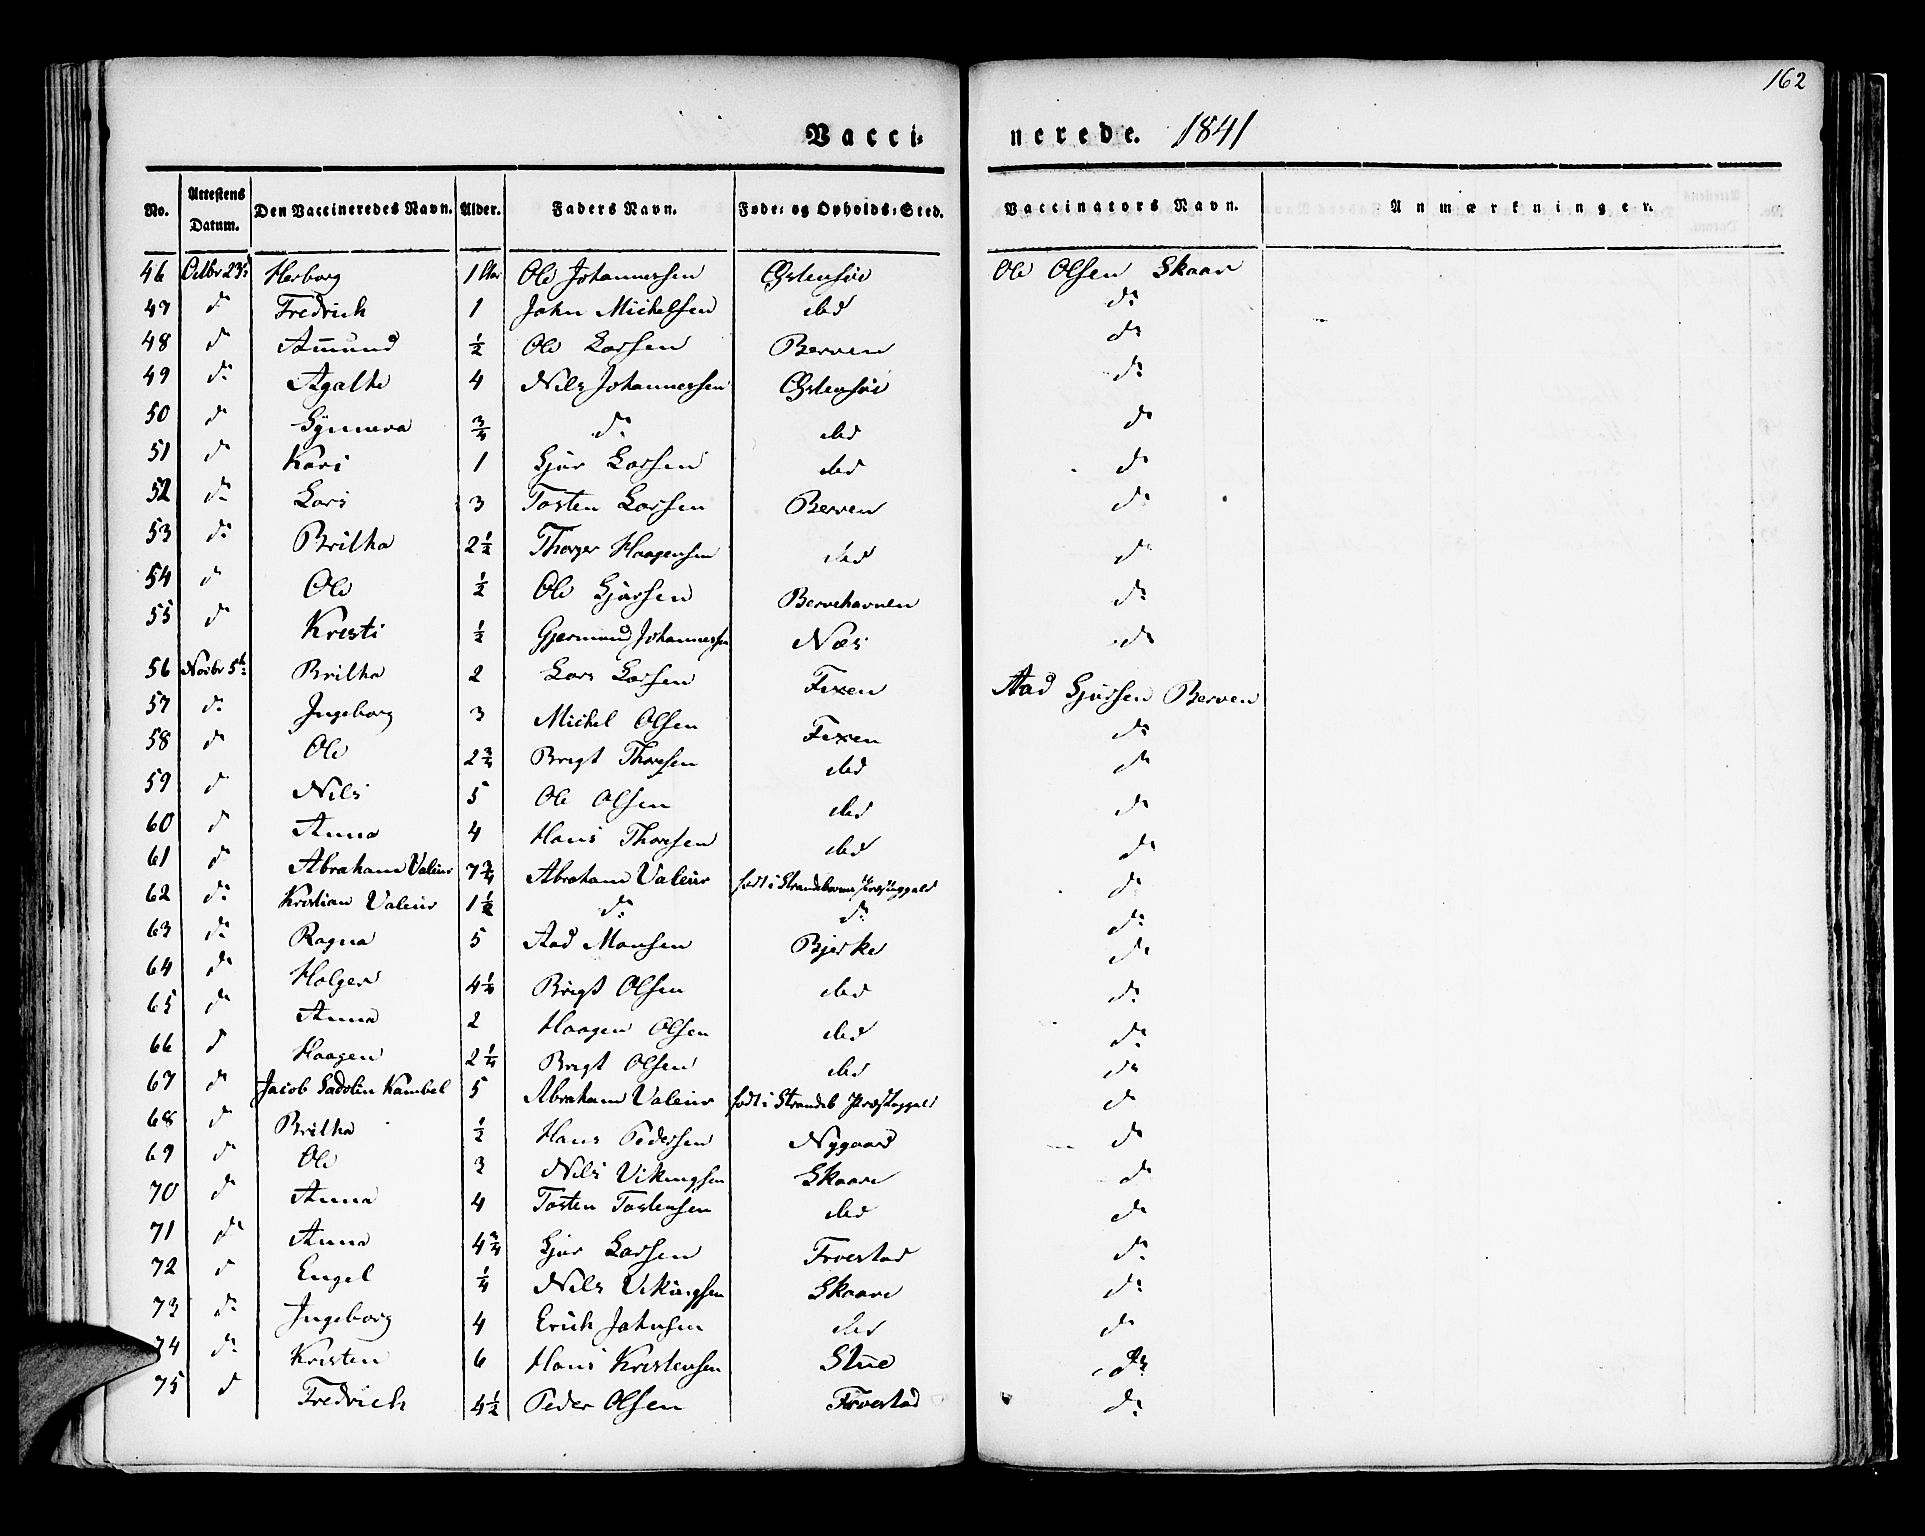 162
Vacci: nerede. 1841
No. | Attestens Datum. | Den Vaccineredes Navn. | Alder. | Faders Navn. | Føde: og Opholds: Sted. | Vaccinators Navn. | Anmærkninger.
46 | Octbr 23: | Herborg | 1 Aar | Ole Johannessen | Østensøe | Ole Olsen Skaar
47 | do | Fredrich | 1 | John Michelsen | ibid | do
48 | do | Amund | ½ | Ole Larsen | Berven | do
49 | do | Agathe | 4 | Nils Johannessen | Østensøe | do
50 | do | Synneva | ¾ | do | ibid | do
51 | do | Kari | 1 | Sjur Larsen | ibid | do
52 | do | Lars | 3 | Tosten Larsen | Berven | do
53 | do | Britha | 2½ | Thorger Haagensen | ibid | do
54 | do | Ole | ½ | Ole Sjursen | Bervehavnen | do
55 | do | Kristi | ½ | Gjermund Johannessen | Næs | do
56 | Novbr 5te: | Britha | 2 | Lars Larsen | Fixen | Aad Sjursen Berven
57 | do | Ingeborg | 3 | Michel Olsen | Fixen | do
58 | do | Ole | 2¾ | Brigt Thoresen | ibid | do
59 | do | Nils | 5 | Ole Olsen | ibid | do
60 | do | Anna | 4 | Hans Thoresen | ibid | do
61 | do | Abraham Valeur | 7¾ | Abraham Valeur | født i Strandeborm Præstegjeld | do
62 | do | Kristian Valeur | 1½ | do | do | do
63 | do | Ragna | 5 | Aad Monsen | Bjerke | do
64 | do | Holger | 4¼ | Brigt Olsen | ibid | do
65 | do | Anna | 2 | Haagen Olsen | ibid | do
66 | do | Haagen | 2¼ | Brigt Olsen | ibid | do
67 | do | Jacob Sadolin Kambel | 5 | Abraham Valeur | født i Strandeb Præstegjeld | do
68 | do | Britha | ½ | Hans Pedersen | Nygaard | do
69 | do | Ole | 3 | Nils Vikingsen | Skaare | do
70 | do | Anna | 4 | Tosten Tostensen | ibid | do
71 | do | Anna | 4¾ | Sjur Larsen | Froestad | do
72 | do | Engel | ¼ | Nils Vikingsen | Skaare | do
73 | do | Ingeborg | 4 | Erich Johnsen | ibid | do
74 | do | Kristen | 6 | Hans Kristensen | Stue | do
75 | do | Fredrich | 4½ | Peder Olsen | Froestad | do